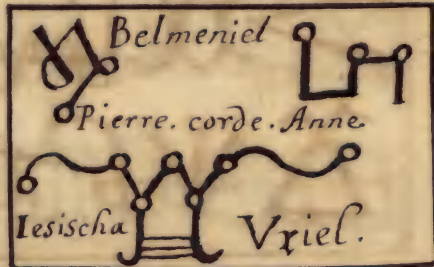 Belmeniel
Pierre. corde. Anne.
Iesischa Vriel.